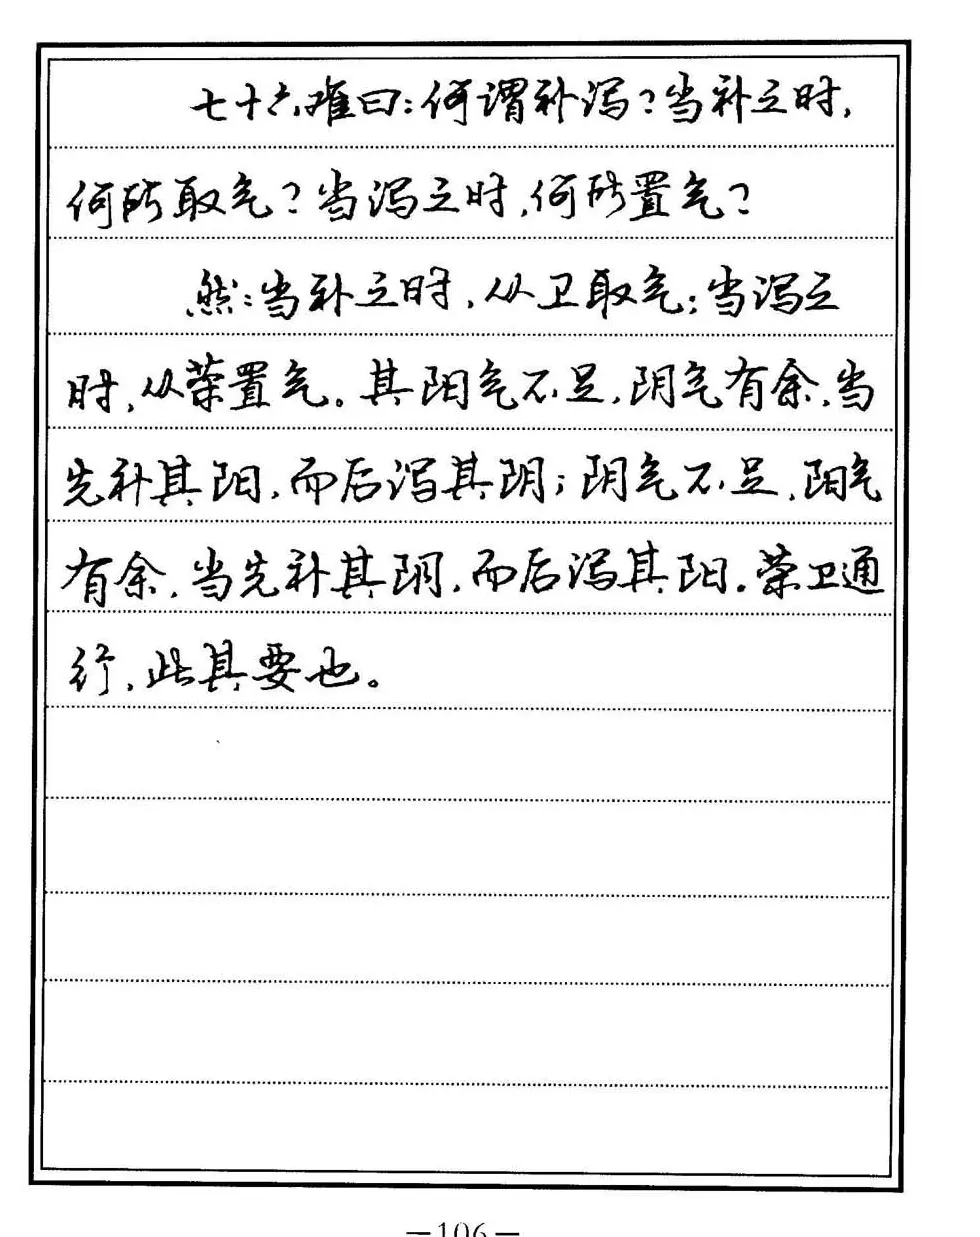 七十六难曰:何谓补泻?当补之时,
何所取气?当泻之时,何所置气?
然:当补之时,从卫取气;当泻之
时,从荣置气。其阳气不足,阴气有余,当
先补其阳,而后泻其阴;阴气不足,阳气
有余,当先补其阴,而后泻其阳。荣卫通
行,此其要也。
—106—